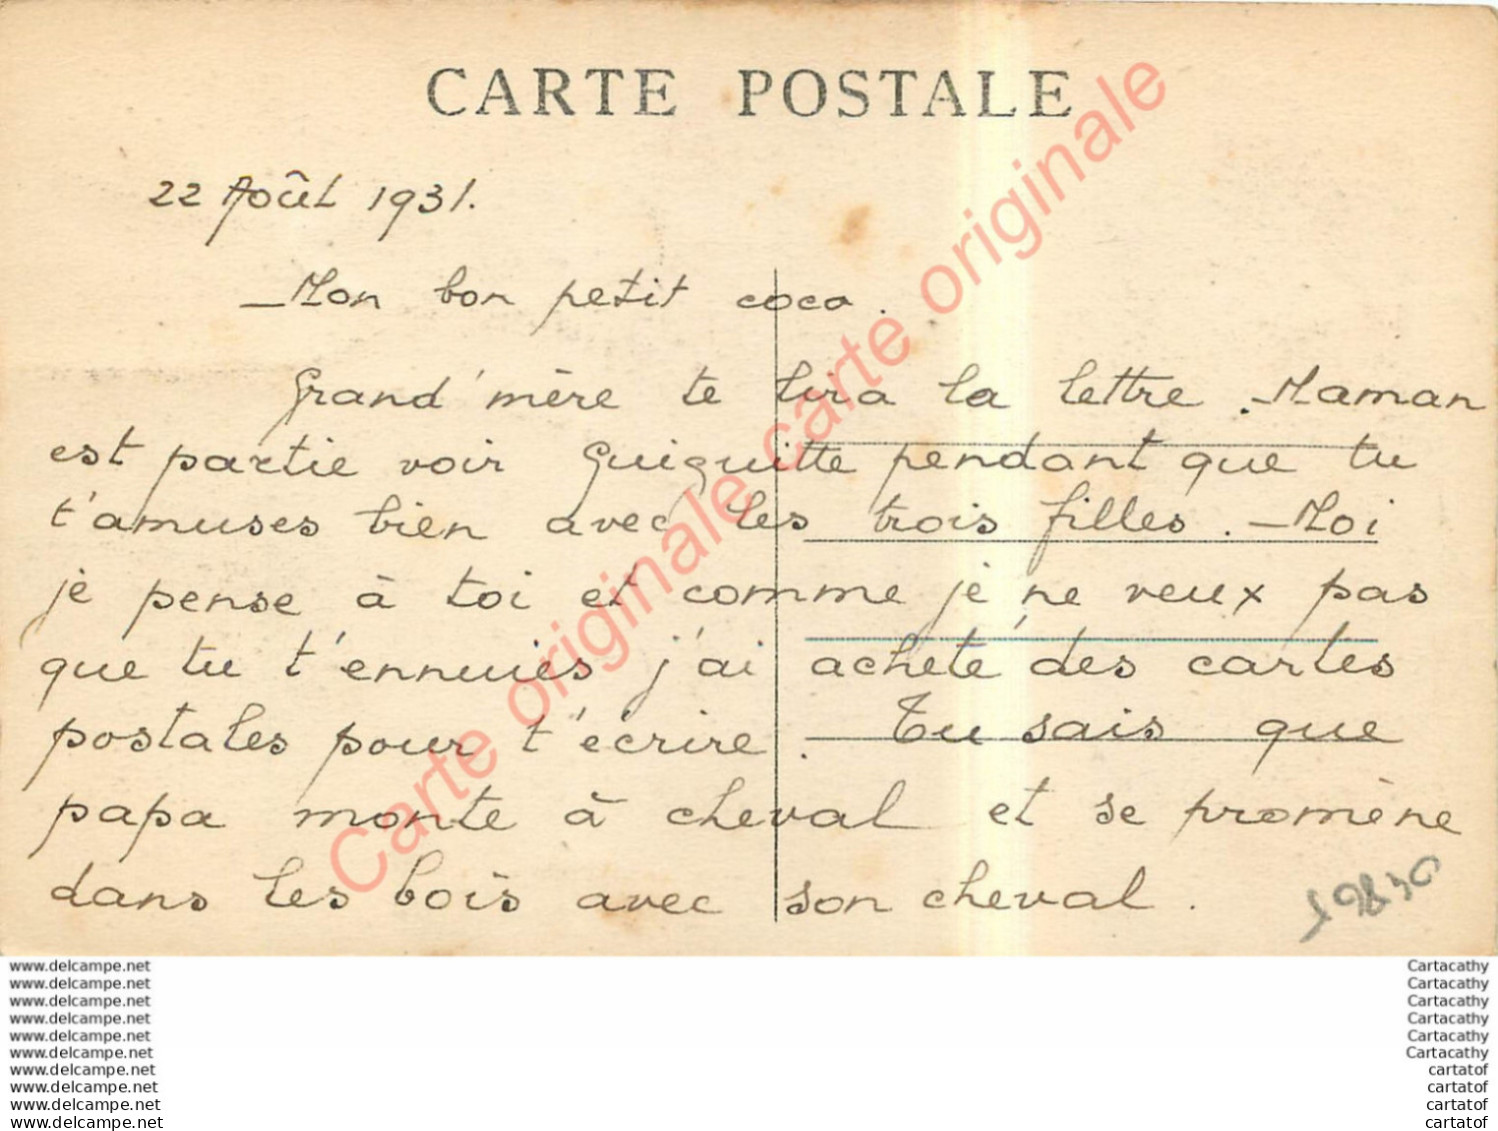 CARTE POSTALE
22 Août 1931.
Mon bon petit coco.
Grand'mère te lira la lettre. Maman
est partie voir Guiguitte pendant que tu
t'amuses bien avec les trois filles. Moi
je pense à toi et comme je ne veux pas
que tu t'ennuies j'ai acheté des cartes
postales pour t'écrire. Tu sais que
papa monte à cheval et se promène
dans les bois avec son cheval.
Carte originale carte originale
www.delcampe.net
www.delcampe.net
www.delcampe.net
www.delcampe.net
www.delcampe.net
www.delcampe.net
www.delcampe.net
www.delcampe.net
www.delcampe.net
www.delcampe.net
Cartacathy
Cartacathy
Cartacathy
Cartacathy
Cartacathy
Cartacathy
cartatof
cartatof
cartatof
cartatof